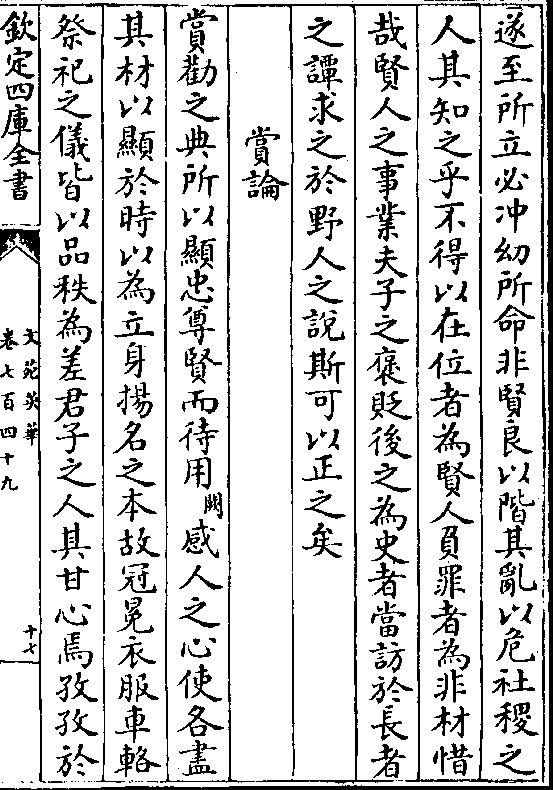 遂至所立必冲幼所命非賢良以階其亂以危社稷之
人其知之乎不得以在位者為賢人負罪者為非材惜
哉賢人之事業夫子之褒貶後之為史者當訪於長者
之譚求之於野人之說斯可以正之矣
賞論
賞勸之典所以顯忠尊賢而待用闕感人之心使各盡
其材以顯於時以為立身揚名之本故冠冕衣服車輅
祭祀之儀皆以品秩為差君子之人其甘心焉孜孜於
欽定四庫全書
文苑英華
卷七百四十九
十七